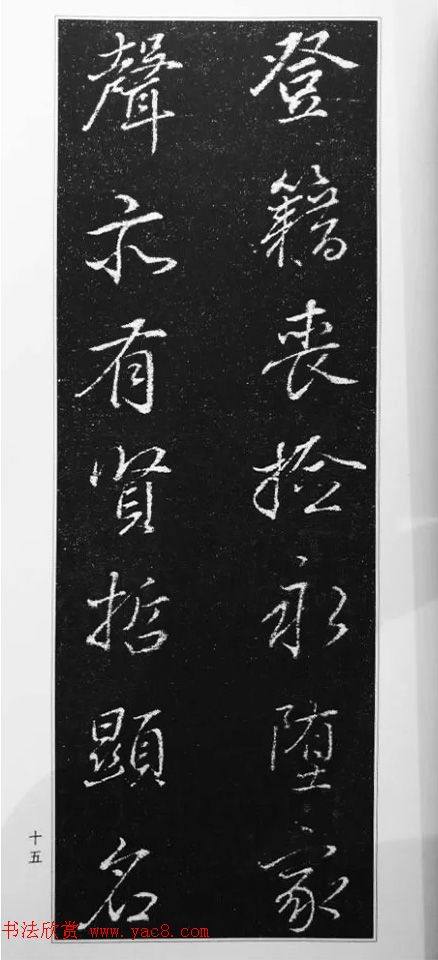 登籍丧检永堕家
聲亦有賢哲顯名
十五
书法欣赏 www.yac8.com